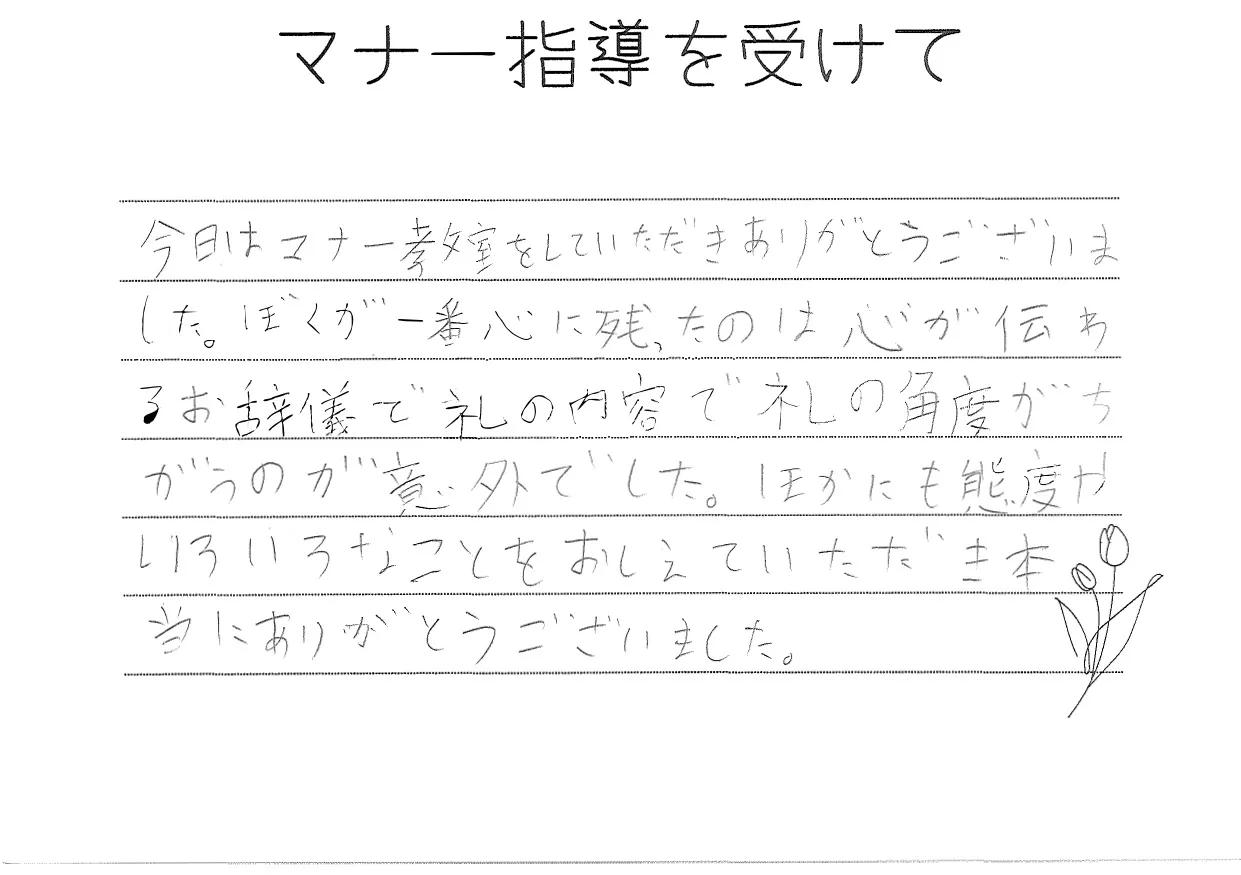 マナー指導を受けて
今日はマナー教室をしていただきありがとうございま
した。ぼくが一番心に残ったのは心が伝わ
るお辞儀で礼の内容で礼の角度がち
がうのが意外でした。ほかにも態度や
いろいろなことをおしえていただき本
当にありがとうございました。